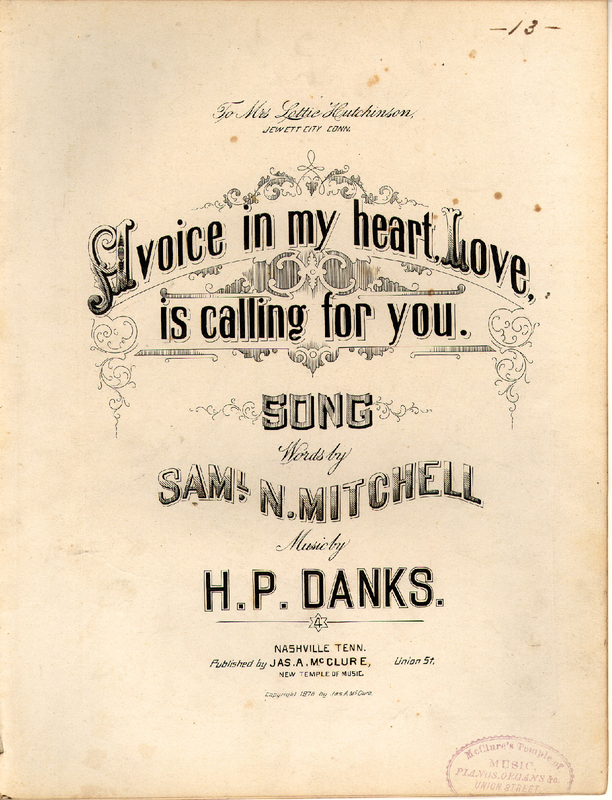 -13-
To Mrs Lottie Hutchinson,
JEWETT CITY CONN.
A voice in my heart, Love,
is calling for you.
SONG
Words by
SAML N. MITCHELL
Music by
H. P. DANKS.
4
NASHVILLE TENN.
Published by JAS. A. McCLURE, Union St.
NEW TEMPLE OF MUSIC.
Copyright 1878 by Jas A McClure.
McClure's Temple of
MUSIC,
PIANOS, ORGANS &c.
UNION STREET.